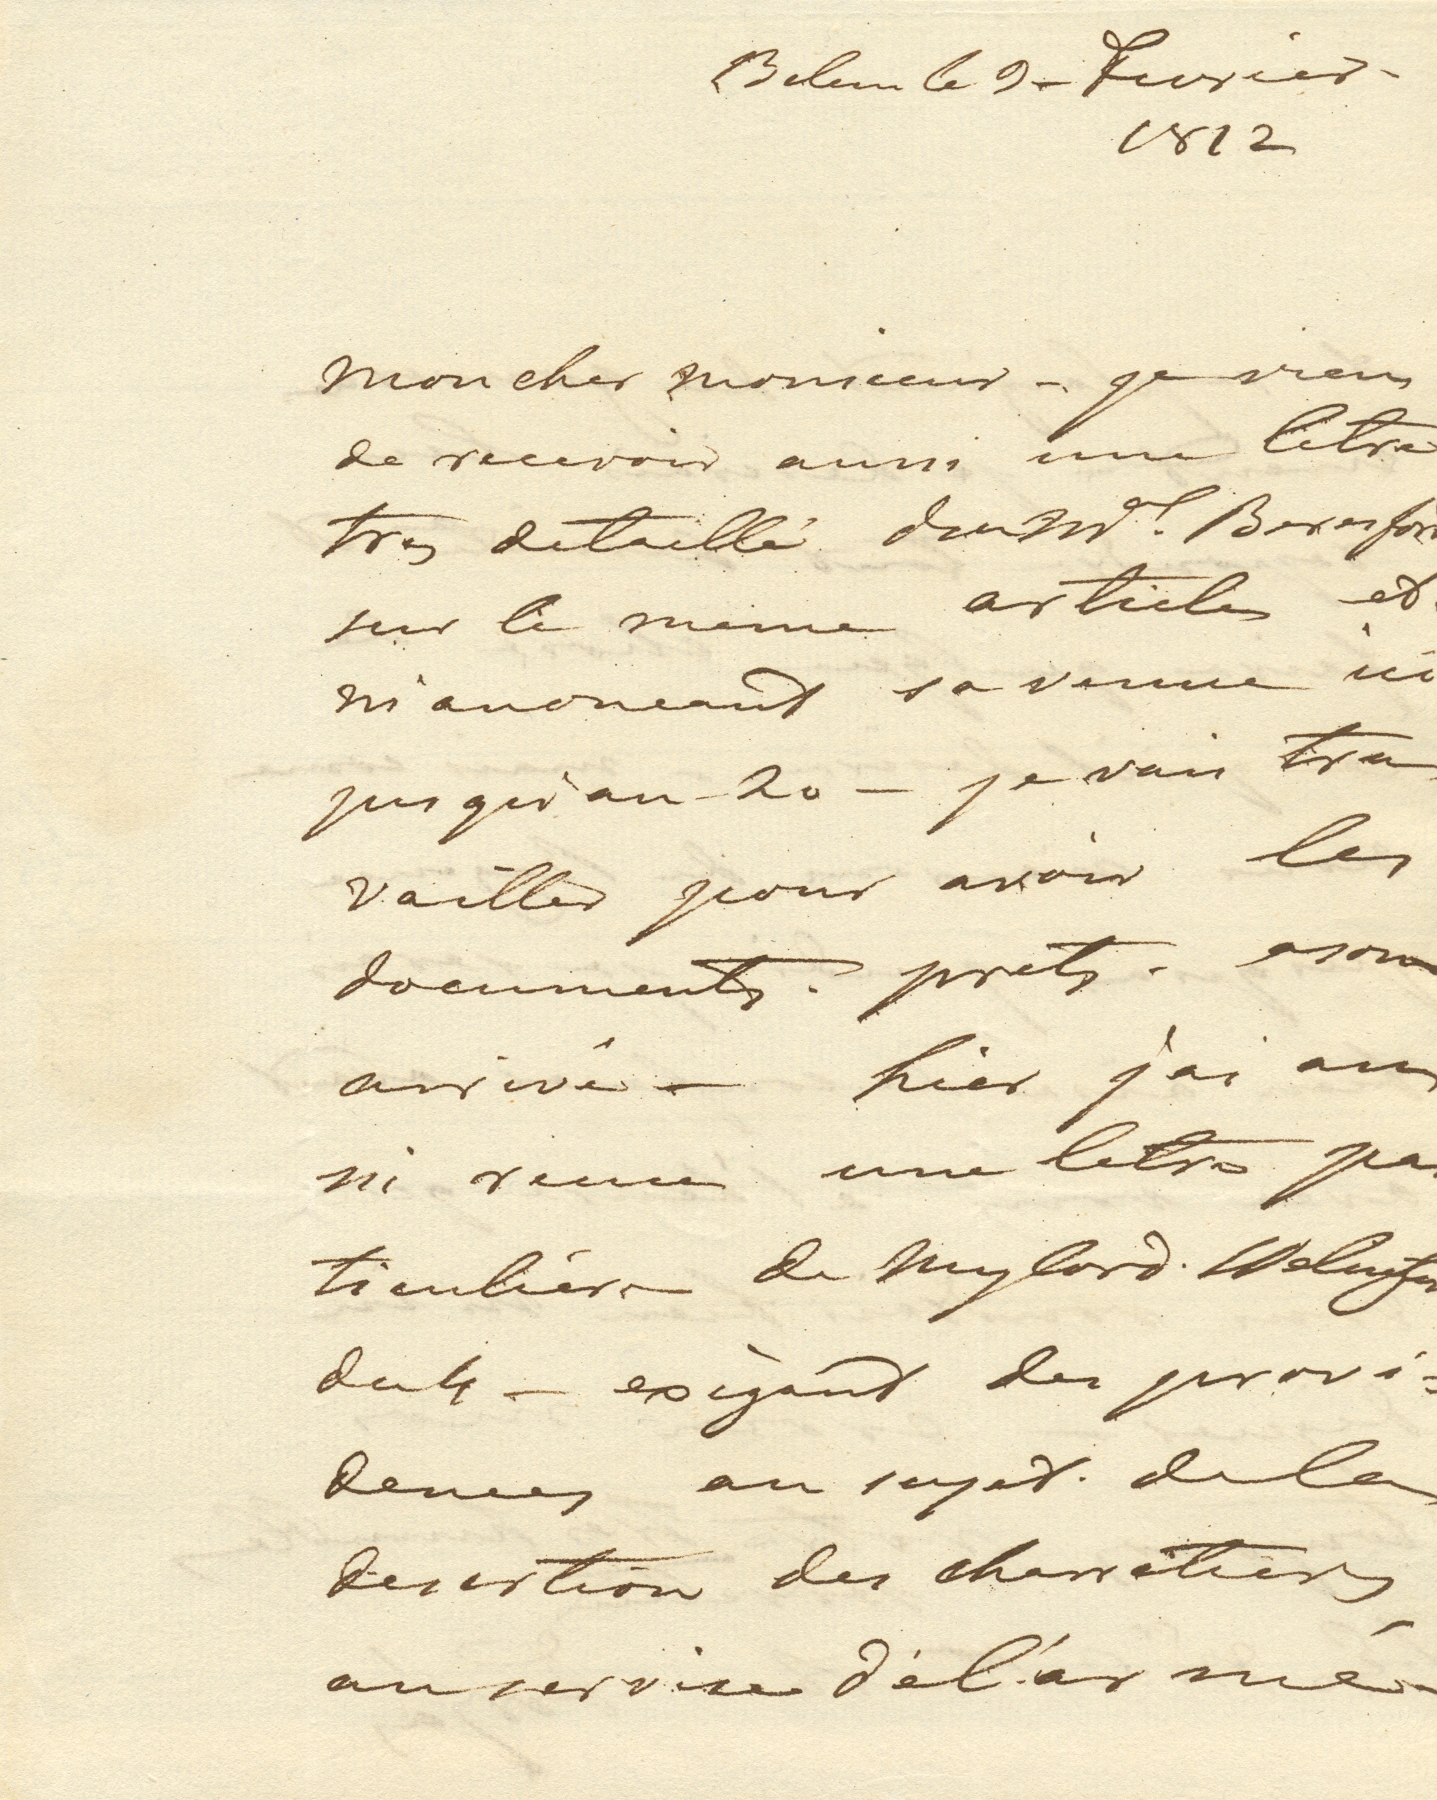 Belem le 9 - Fevrier -
1812
Mon cher Monsieur - je viens
de recevoir aussi une letre
tres detaillé du Mal. Beresford
sur le meme articles et
m'anonceant sa venue ici
jusqu'au 20 - je vais tra
vailler pour avoir les
documents prets. a son
arrivé - hier j'ai aus
si recue une letre par
ticuliére de Mylord Welington
du 4 - exigant des provi=
dences au sujet de la
desertion des charretiers
au servise dé l'armé -